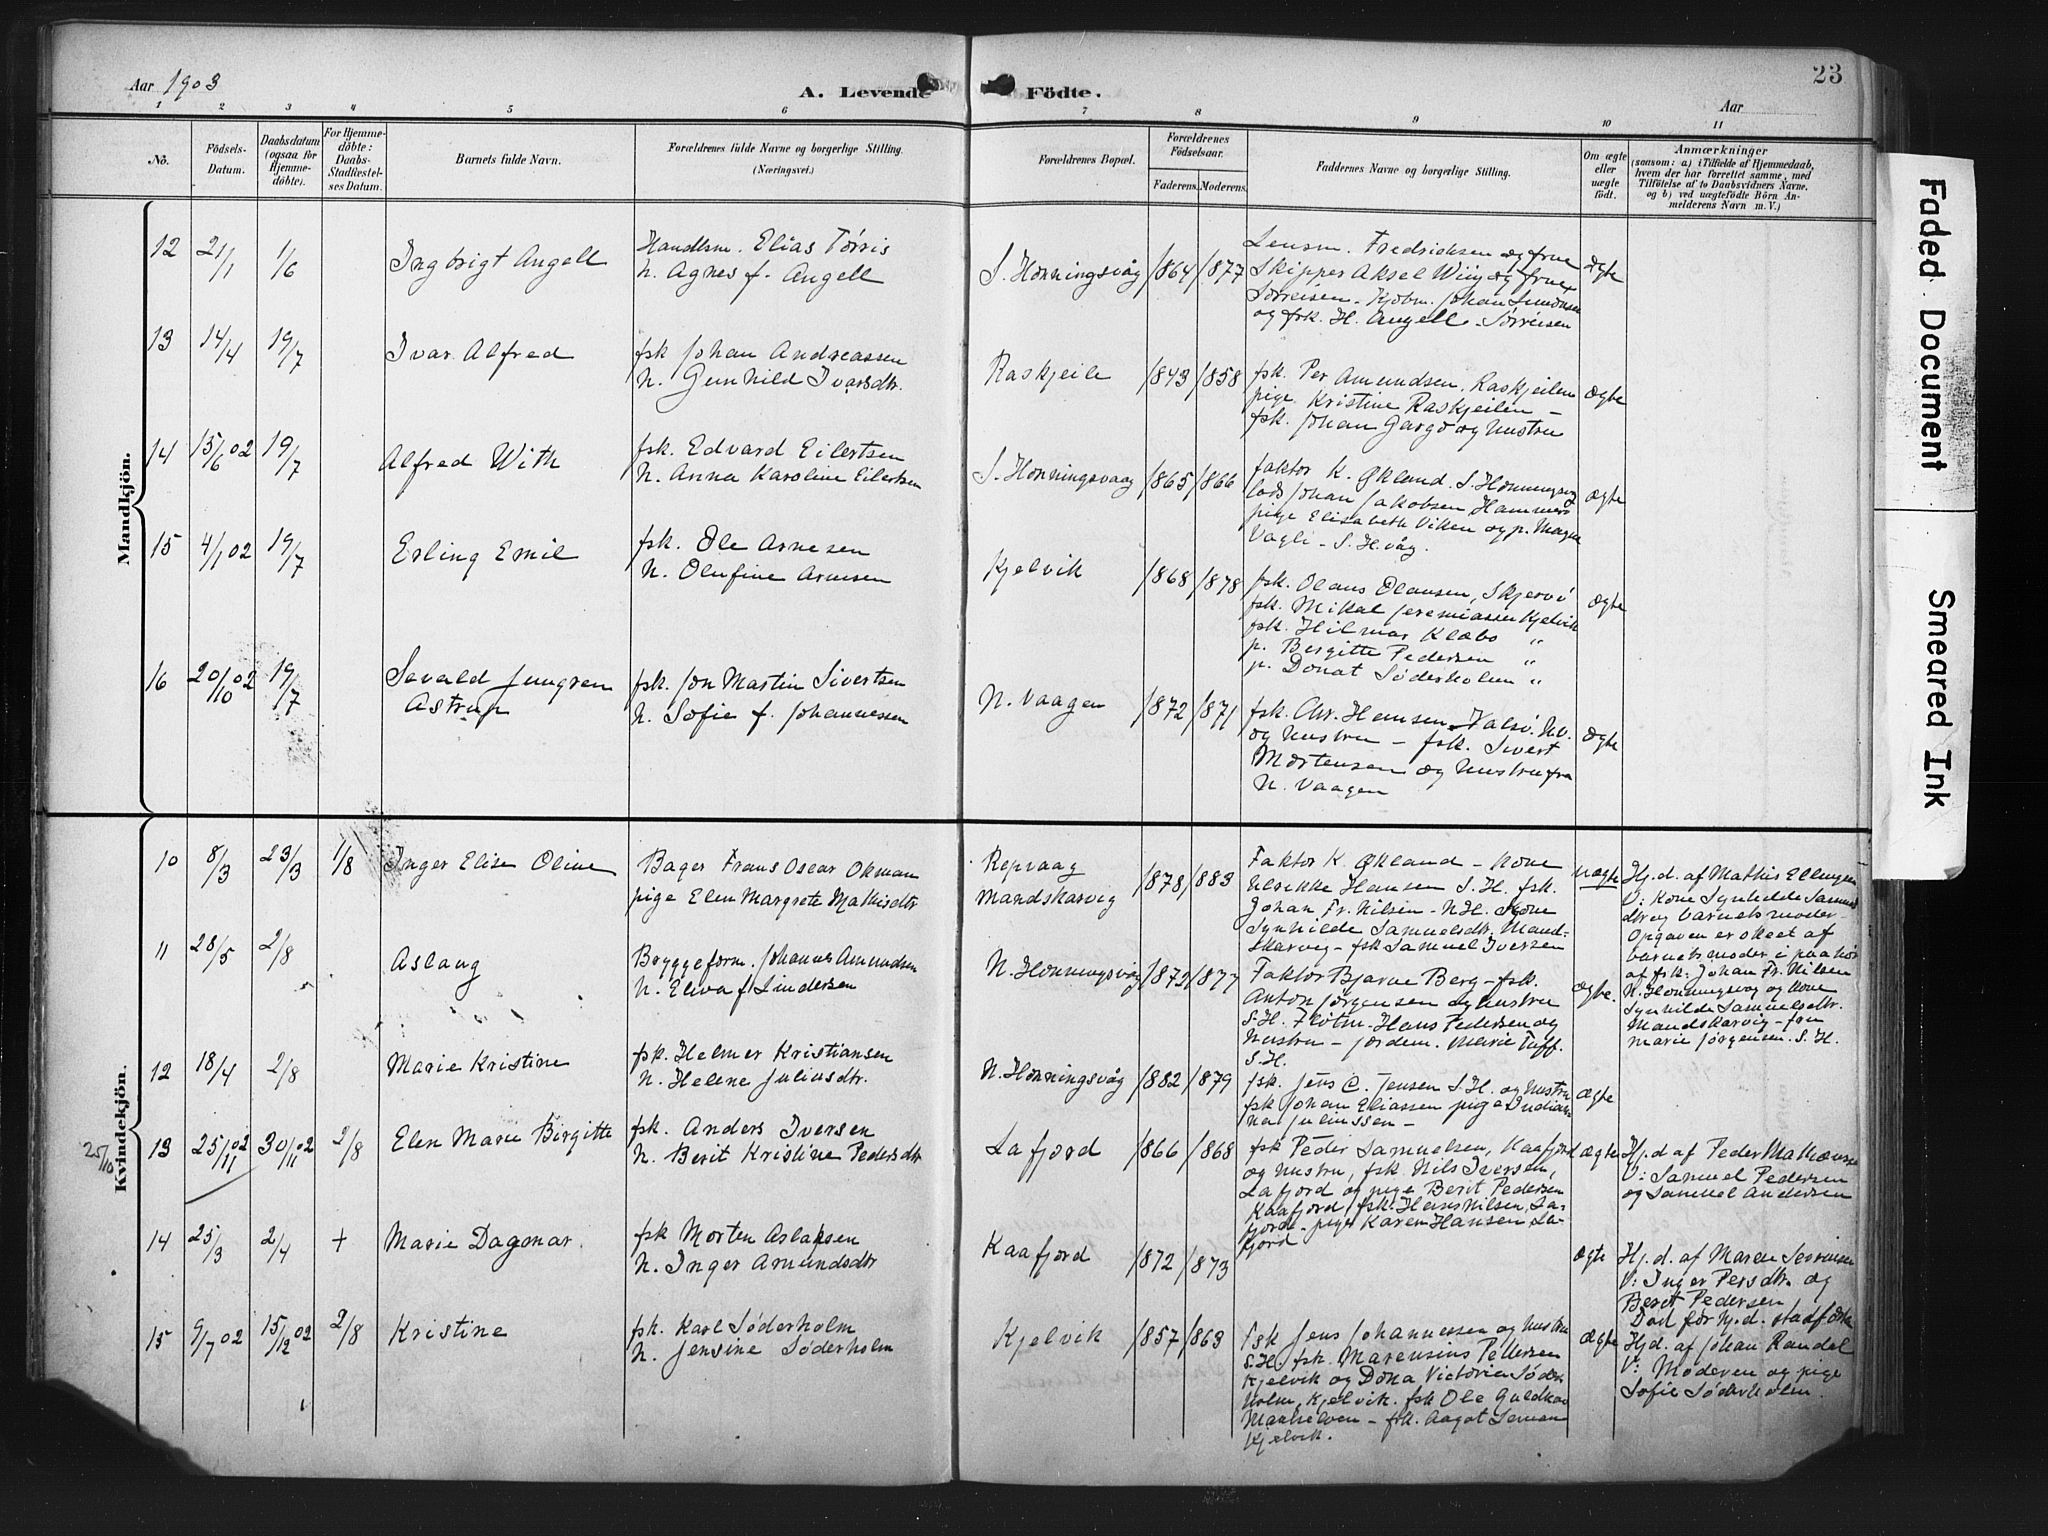 Aar 1903
A. Levende Födte.
23
Aar
1 2 3 4 5 6 7 8 9 10 11
No.
Födsels-Datum.
Daabsdatum (ogsaa for Hjemme-döbte).
For Hjemme-döbte: Daabs-Stadfæstel-ses Datum.
Barnets fulde Navn.
Forældrenes fulde Navne og borgerlige Stilling. (Næringsvei.)
Forældrenes Bopæl.
Forældrenes Födselsaar.
Faderens. Moderens.
Faddernes Navne og borgerlige Stilling.
Om ægte eller uægte födt.
Anmærkninger
(saasom: a) i Tilfælde af Hjemmedaab,
hvem der har forrettet samme, med
Tilföielse af to Daabsvidners Navne,
og b) ved uægtefödte Börn An-
melderens Navn m. V.)
Mandkjön.
12 21/1 1/6 Ingbrigt Angell
Handlsm. Elias Tørris
h. Agnes f. Angell
S. Honningsvåg 1864 1877
Lensm. Fredriksen og frue
Skipper Aksel Wiig og frue
Sørreisen - Kjøbm. Johan Simonsen
og fsk. H. Angell - Sørreisen
ægte
13 14/4 19/7 Ivar Alfred
fsk Johan Andreassen
h. Gunhild Ivarsdtr.
Raskjeile 1843 1858
fsk. Per Amundsen. Raskjeilen
pige Kristine Raskjeilen -
fsk. Johan Gargo og hustru
ægte
14 15/6 02 19/7 Alfred With
fsk. Edvard Eilertsen
h. Anna Karoline Eilertsen
S. Honningsvaag 1865 1866
faktor K. Økland. S. Honningsvg
lods Johan Jakobsen Hammerf
pige Elisabeth Viken og p. Magna
Vagli - S. H.våg.
ægte
15 4/1 02 19/7 Erling Emil
fsk. Ole Arnesen
h. Olufine Arnesen
Kjelvik 1868 1878
fsk. Olaus Olausen, Skjervö
fsk. Mikal Jeremiassen Kjelvik
fsk. Hilmar Klæbo "
p. Bergitte Pedersen "
p. Donat Søderholm "
ægte
16 20/10 02 19/7 Sevald Jungren
Astrup
fsk. Jon Martin Sivertsen
h. Sofie f. Johannessen
N. Vaagen 1872 1871
fsk. Chr. Hansen Valsö. Nv.
og hustru - fsk. Sivert
Mortensen og hustru fra
N. Vaagen
ægte
Kvindekjön.
10 8/3 23/3 1/8 Inger Elise Oline
Bager Frans Oscar Okman
pige Elen Margrete Mathisdtr
Repvaag
Mandskarvig 1878 1883
Faktor K. Økland - Kone
Ulrikke Hansen S. H. fsk.
Johan Fr. Nilsen - N.H. Kone
Synhilde Samuelsdtr. Mand-
skarvig - fsk Samuel Iversen
uægte
Hj. d. af Mathis Ellingsen
V: Kone Synhilde Samuels
dtr og barnets moder -
Opgaven er skeet af
barnets moder i paahör
af fsk: Johan Fr. Nilsen
N. Honningsvag og Kone
Synhilde Samuelsdtr.
Mandskarvig - fru
Marie Jørgensen. S. H.
11 28/5 2/8 Aslaug
Byggeform. Johannes Amundsen
h. Eliva f. Lindersen
N. Honningsvåg 1872 1877
Faktor Bjarne Berg - fsk.
Anton Jørgensen og hustru
S.H. Fløtm. Hans Pedersen og
hustru - Jordem. Marie Tuff.
S.H.
ægte.
12 18/4 2/8 Marie Kristine
fsk. Helmer Kristiansen
h. Helene Juliusdtr.
N. Honningsvåg 1882 1879
fsk. Jens C. Jensen S.H. og hustru
fsk Johan Eliassen pige Indian-
na Juliussen -
ægte
25/10
13 25/11 02 30/11 02 2/8 Elen Marie Birgitte
fsk. Anders Iversen
h. Berit Kristine Pedersdtr
Lafjord 1866 1868
fsk Peder Samuelsen, Kaafjord
og hustru, fsk. Nils Iversen,
Lafjord og pige Berit Pedersen
Kaafjord, fsk. Hans Nilsen, La-
fjord - pige Karen Hansen La-
fjord
ægte
Hj. d af Peder Mathæussen
V: Samuel Pedersen
og Samuel Andersen
14 25/3 2/4 + Marie Dagmar.
fsk Morten Aslaksen
h. Inger Amundsdtr
Kaafjord 1872 1873
ægte
Hj. d. af Maren Serrinsen
V: Inger Persdtr. og
Berit Pedersen
Død før hj.d. stadfæstn
15 9/7 02 15/12 02 2/8 Kristine
fsk. Karl Søderholm
h. Jensine Søderholm
Kjelvik 1857 1863
fsk Jens Johannessen og hustru
S.H. fsk. Marensius Pedersen
Kjelvik og Dona Victoria Søder-
holm, Kjelvik. fsk Ole Guldhav
Maalselven - fsk. Aagot Jensen
Kjelvik.
ægte
Hj.d. af Johan Randal
V: Moderen og pige
Sofie Søderholm.
Faded Document
Smeared Ink